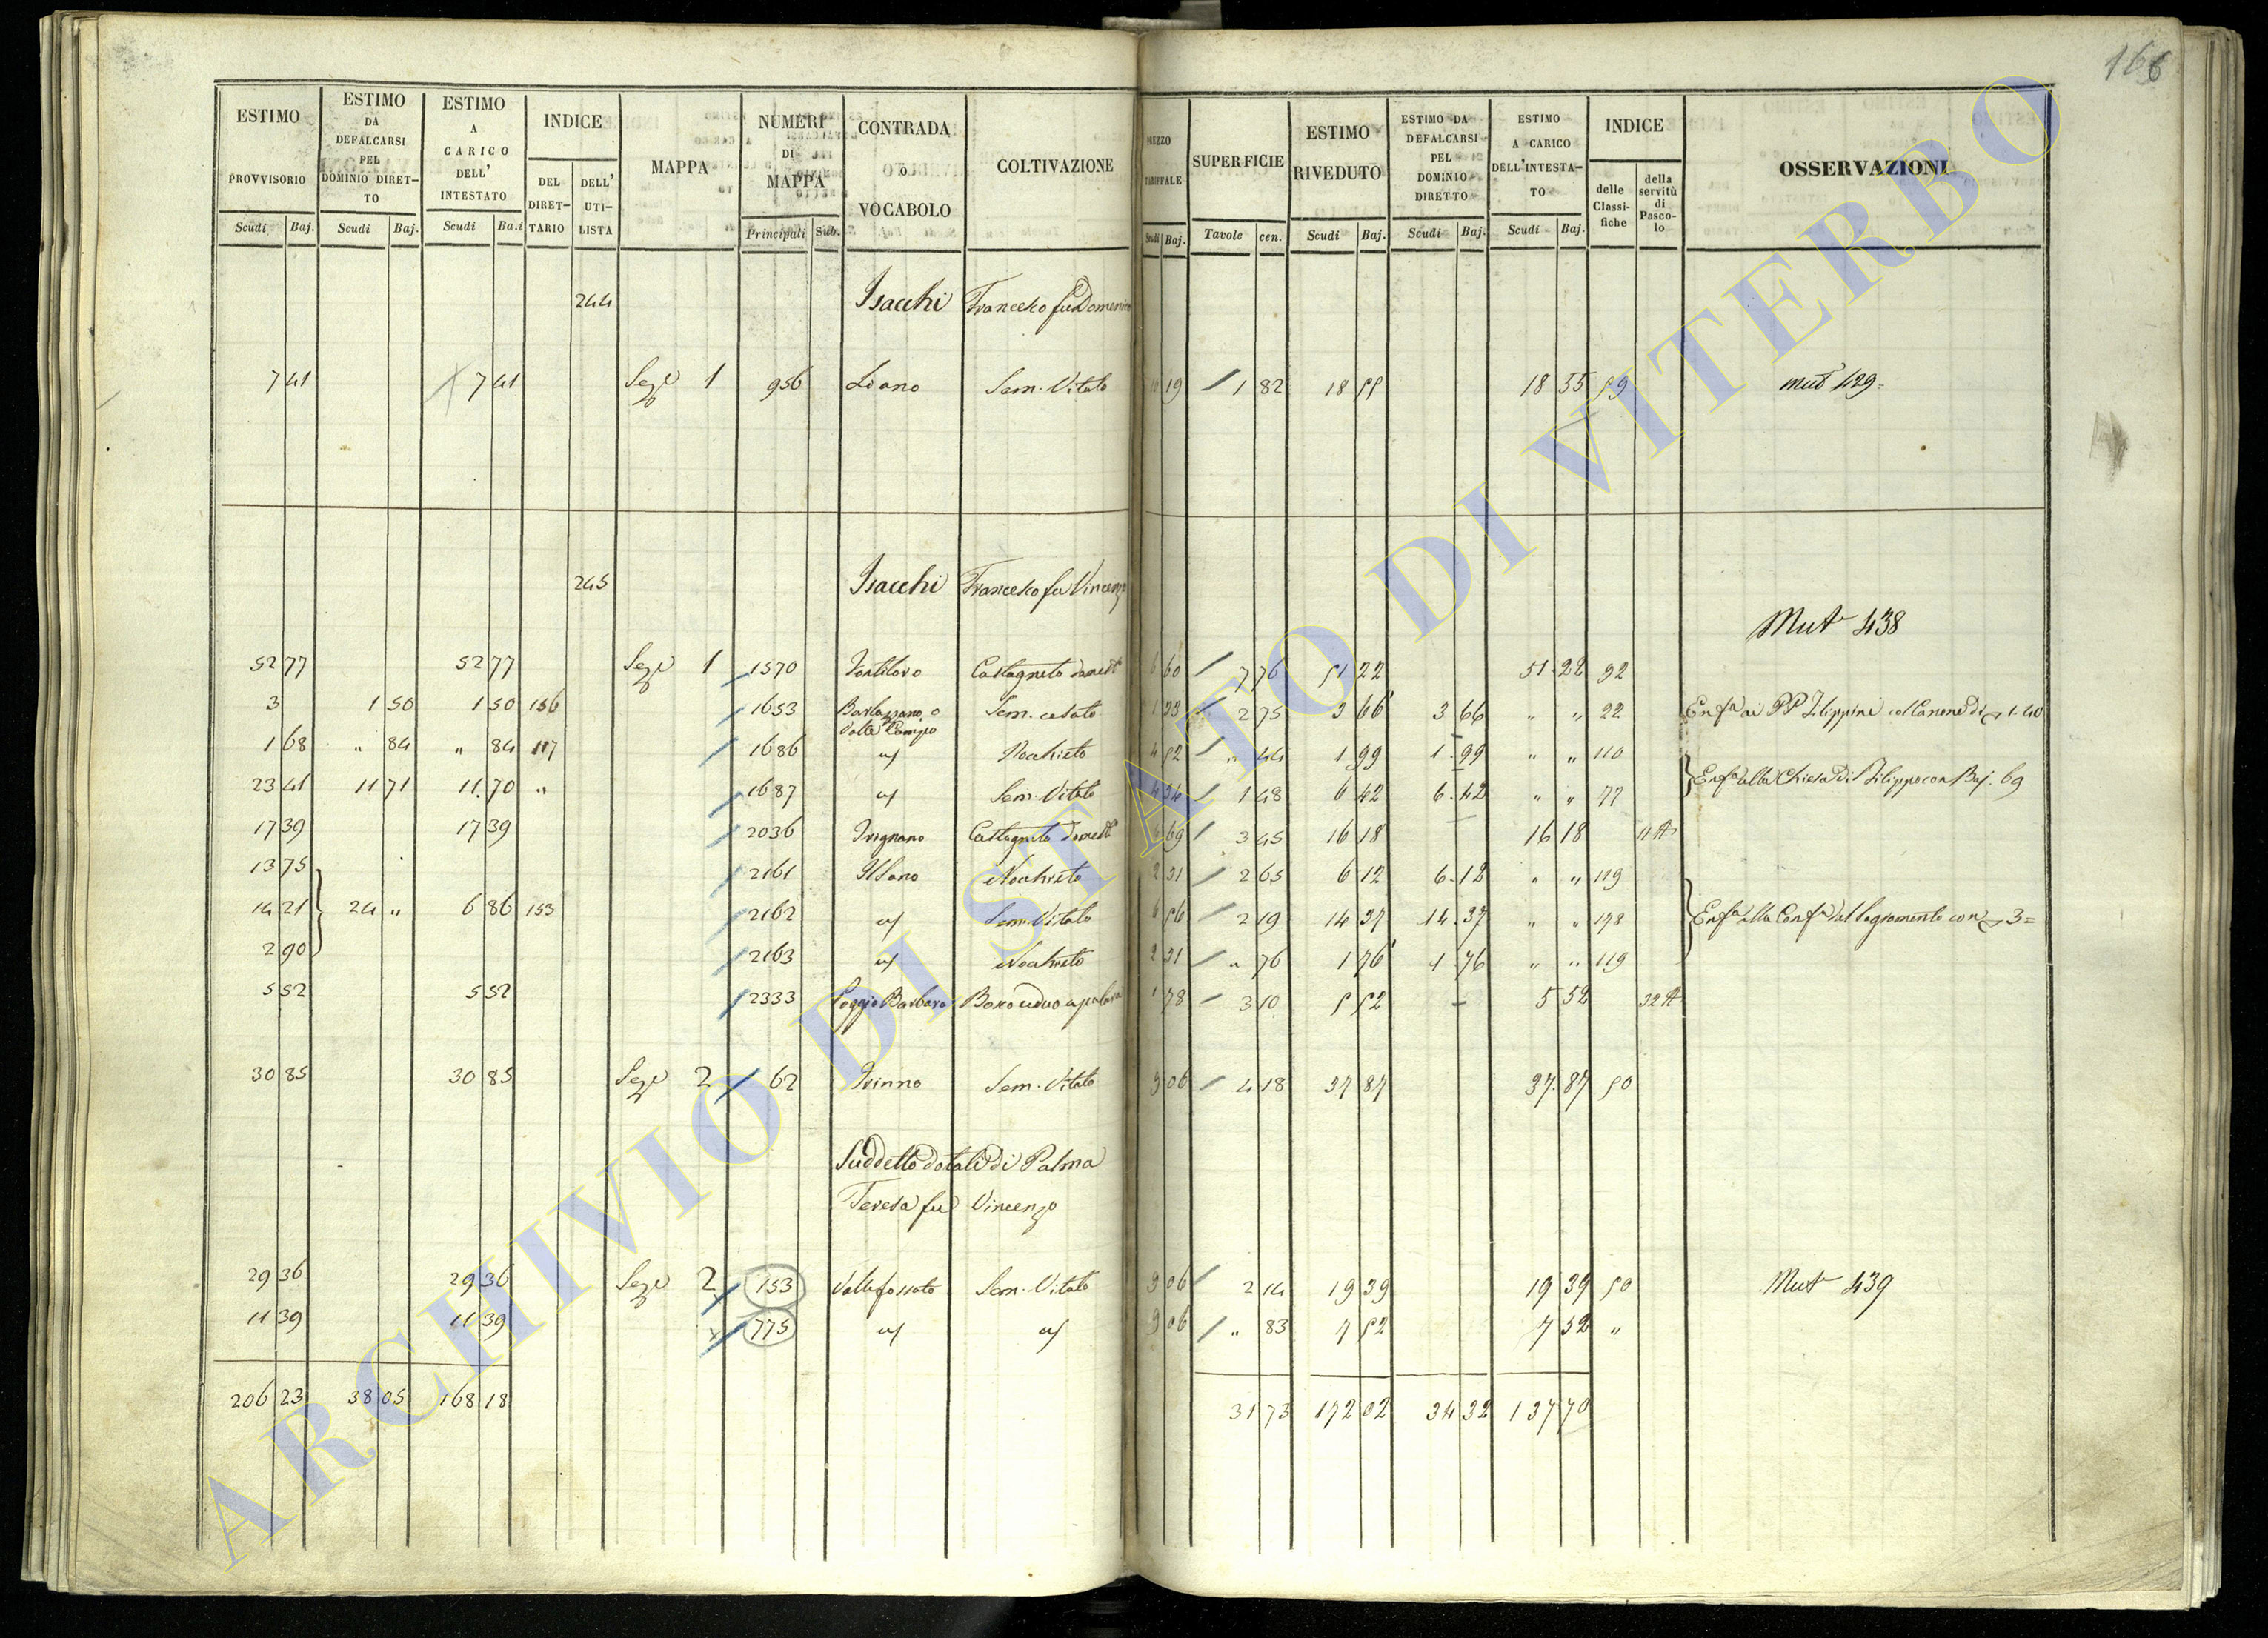 166
ESTIMO PROVVISORIO Scudi Baj.
ESTIMO DA DEFALCARSI PEL DOMINIO DIRET-TO Scudi Baj.
ESTIMO A CARICO DELL' INTESTATO Scudi Ba.i
INDICE DEL DIRET-TARIO DELL' UTI-LISTA
MAPPA
NUMERI DI MAPPA Principali Sub.
CONTRADA o VOCABOLO
COLTIVAZIONE
PREZZO TARIFFALE Scudi Baj.
SUPERFICIE Tavole cen.
ESTIMO RIVEDUTO Scudi Baj.
ESTIMO DA DEFALCARSI PEL DOMINIO DIRETTO Scudi Baj.
ESTIMO A CARICO DELL'INTESTA-TO Scudi Baj.
INDICE delle Classi-fiche della servitù di Pasco-lo
OSSERVAZIONI
244 Isacchi Francesco fu Domenico
7 41 7 41 Seze 1 956 Liano Sem. Vitato 19 1 82 18 55 18 55 59 mut 429=
245 Isacchi Francesco fu Vincenzo
Mut 438
52 77 52 77 Seze 1 1570 Castagneto 6 60 7 76 51 22 51 22 92
3 1 50 1 50 156 1653 Barbazzano o Valle Campo Sem. cesato 1 33 2 75 3 66 3 66 " " 22 Enfa ai PP Filippini col Canone di 1.40
1 68 " 84 " 84 117 1686 Nochieto 4 52 " 44 1 99 1.99 " " 110
23 41 11 71 11.70 " 1687 Sem. Vitato 4 34 1 48 6 42 6.42 " " 77 Enfa alla Chiesa di S Filippo con Baj. 69
17 39 17 39 2036 Trignano Castagneto 4 69 3 45 16 18 16 18 11 A
13 75 2161 Nochieto 2 31 2 65 6 12 6.12 " " 119
14 21 24 " 6 86 153 2162 Sem. Vitato 6 56 2 19 14 37 14.37 " " 178 Enfa alla Confa del Sagramento con 3=
2 90 2163 Nochieto 2 31 " 76 1 76 1.76 " " 119
5 52 5 52 2333 Poggio Barbaro Bosco ceduo a palina 1 78 3 10 5 52 - 5 52 32 A
30 85 30 85 Seze 2 62 Trinno Sem. Vitato 9 06 4 18 37 87 37.87 50
Suddetto dotali di Palma
Teresa fu Vincenzo
29 36 29 36 Seze 2 153 Valle fossato Sem. Vitato 9 06 2 14 19 39 19 39 50 Mut 439
11 39 11 39 775 9 06 " 83 7 52 7 52 "
206 23 38 05 168 18 31 73 172 02 34 32 137 70
ARCHIVIO DI STATO DI VITERBO